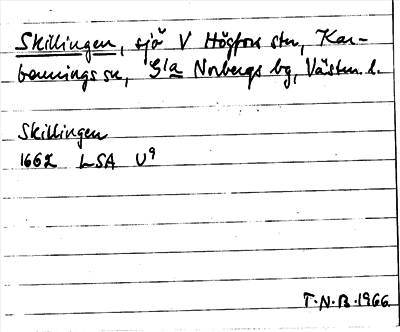 Skillingen, sjö V Högfors stn, Kar-
bennings sn, G:la Norbergs bg, Västm. l.
Skillingen
1662 LSA U9
T.N.B. 1966.